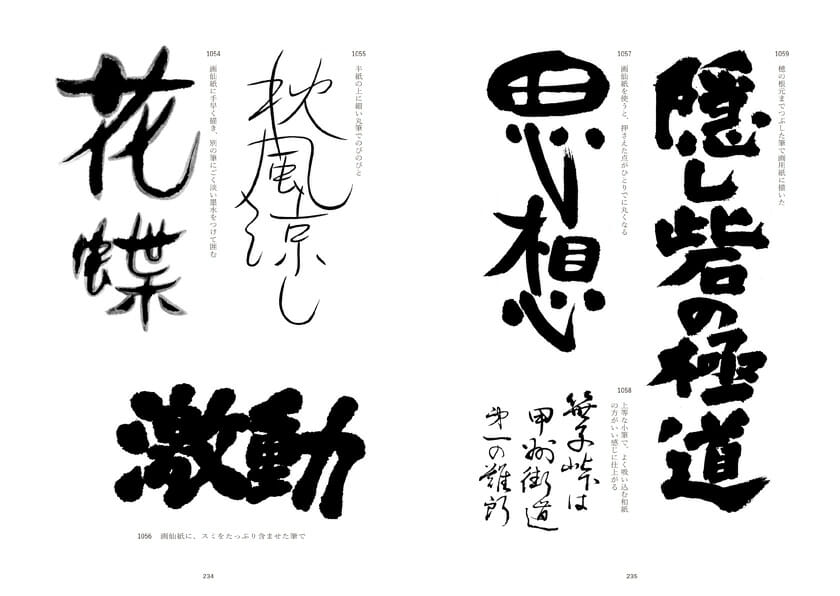 1054
画仙紙に手早く描き、別の筆にごく淡い墨水をつけて囲む
花蝶
1055
半紙の上に細い丸筆でのびのびと
秋風涼し
激動
1056 画仙紙に、スミをたっぷり含ませた筆で
234
1057
画仙紙を使うと、押さえた点がひとりでに丸くなる
思想
1058
上等な小筆で、よく吸い込む和紙
の方がいい感じに仕上がる
笹子峠は
甲州街道
第一の難所
1059
穂の根元までつぶした筆で画用紙に描いた
隠し砦の極道
235